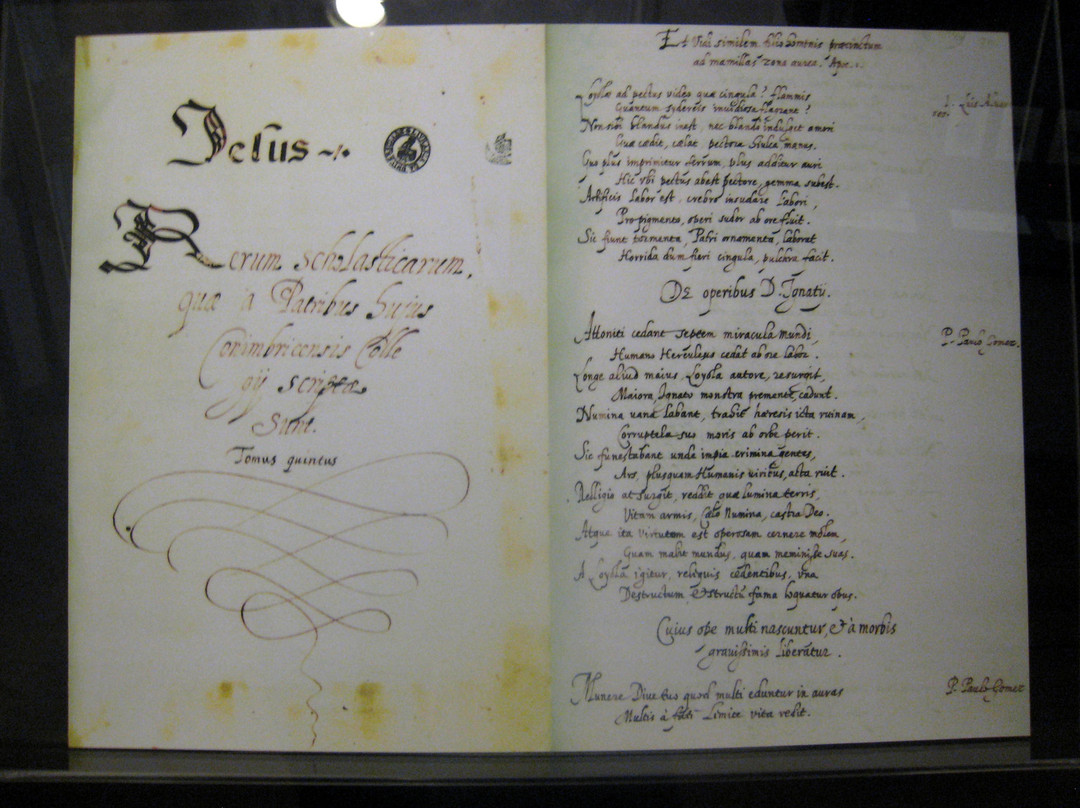 Jesus
Rerum scholasticarum,
quæ a Patribus huius
Conimbricensis Colle
gij scriptæ
Sunt.
Tomus quintus
Et Vidi similem filio hominis præcinctum
ad mamillas zona aurea. Apoc. 1.
Loyolæ ad pectus video quæ cingula? flammis
Quantum sydereis invidiosa
P. Luis
Non sibi blandus inest, nec blande indulget amori
Quæ cædit, cælat pectora hiulca manus.
Quo plus imprimitur ferrum, plus additur auri
Hic ubi pectus abest pectore, gemma subest.
Artificis labor est, crebro insudare labori,
Pro pigmento, operi sudor ab ore fluit.
Sic fiunt tormenta, Patri ornamenta, laborat
Horrida dum fieri cingula, pulchra facit.
De operibus D. Ignatij.
Attoniti cedant septem miracula mundi,
P. Paulo Gomez.
Humano Herculeus cedat ab ore labor.
Longe aliud maius, Loyola autore, resurgit,
Maiora, Ignatio monstra premente, cadunt.
Numina vana labant, trahit hæresis icta ruinam,
Corruptela suo moris ab orbe perit.
Sic funestabant unda impia crimina gentes,
Ars, plusquam Humanis viribus, acta ruit.
Relligio ut surgit, reddit quæ lumina terris,
Vitam armis, Cælo Numina, castra Deo.
Atque ita virtutem est operosam cernere molem,
Quam malit mundus, quam meminisse suas.
A Loyola igitur, reliquis cedentibus, una
Destructum & structũ fama loquatur opus.
Cuius ope multi nascuntur, & à morbis
gravissimis liberãtur.
Munere Dive tuo quod multi eduntur in auras
P. Paulo Gomez
Multis à fati limite vita redit.